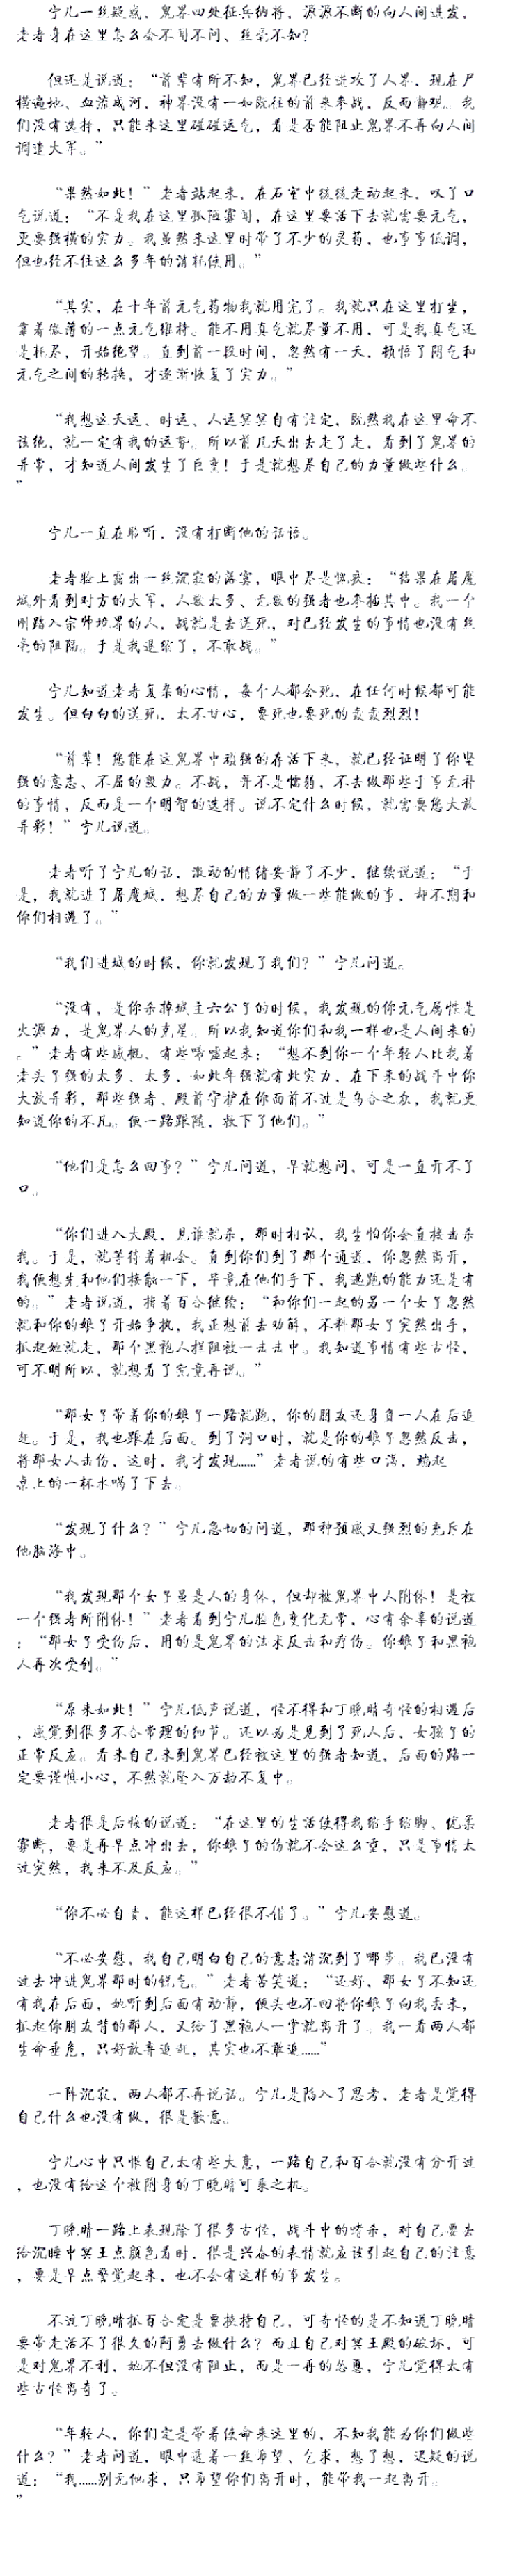 宁儿一丝疑惑，鬼界四处征兵纳将，源源不断的向人间进发，
老者身在这里怎么会不闻不问、丝毫不知？
但还是说道：“前辈有所不知，鬼界已经进攻了人界，现在尸
横遍地、血流成河，神界没有一如既往的前来参战，反而静观。我
们没有选择，只能来这里碰碰运气，看是否能阻止鬼界不再向人间
调遣大军。”
“果然如此！”老者站起来，在石室中缓缓走动起来，叹了口
气说道：“不是我在这里孤陋寡闻，在这里要活下去就需要元气，
更要强横的实力。我虽然来这里时带了不少的灵药，也事事低调，
但也经不住这么多年的消耗使用。”
“其实，在十年前元气药物我就用完了。我就只在这里打坐，
靠着微薄的一点元气维持。能不用真气就尽量不用，可是我真气还
是耗尽，开始绝望。直到前一段时间，忽然有一天，顿悟了阴气和
元气之间的转换，才逐渐恢复了实力。”
“我想这天运、时运、人运冥冥自有注定，既然我在这里命不
该绝，就一定有我的运势。所以前几天出去走了走，看到了鬼界的
异常，才知道人间发生了巨变！于是就想尽自己的力量做些什么。
”
宁儿一直在聆听，没有打断他的话语。
老者脸上露出一丝沉寂的落寞，眼中尽是惭疚：“结果在屠魔
城外看到对方的大军，人数太多、无数的强者也参插其中。我一个
刚踏入宗师境界的人，战就是去送死，对已经发生的事情也没有丝
毫的阻隔。于是我退缩了，不敢战。”
宁儿知道老者复杂的心情，每个人都会死，在任何时候都可能
发生。但白白的送死，太不甘心，要死也要死的轰轰烈烈！
“前辈！您能在这鬼界中顽强的存活下来，就已经证明了你坚
强的意志、不屈的毅力。不战，并不是懦弱，不去做那些于事无补
的事情，反而是一个明智的选择。说不定什么时候，就需要您大放
异彩！”宁儿说道。
老者听了宁儿的话，激动的情绪安静了不少，继续说道：“于
是，我就进了屠魔城，想尽自己的力量做一些能做的事，却不期和
你们相遇了。”
“我们进城的时候，你就发现了我们？”宁儿问道。
“没有，是你杀掉城主六公子的时候，我发现的你元气属性是
火源力，是鬼界人的克星。所以我知道你们和我一样也是人间来的
。”老者有些感概、有些唏嘘起来：“想不到你一个年轻人比我着
老头子强的太多、太多，如此年强就有此实力，在下来的战斗中你
大放异彩，那些强者、殿前守护在你面前不过是乌合之众，我就更
知道你的不凡。便一路跟随，救下了他们。”
“他们是怎么回事？”宁儿问道，早就想问，可是一直开不了
口。
“你们进入大殿，见谁就杀，那时相认，我生怕你会直接击杀
我。于是，就等待着机会。直到你们到了那个通道，你忽然离开，
我便想先和他们接触一下，毕竟在他们手下，我逃跑的能力还是有
的。”老者说道，指着百合继续：“和你们一起的另一个女子忽然
就和你的娘子开始争执，我正想前去劝解，不料那女子突然出手，
抓起她就走，那个黑袍人拦阻被一击击中。我知道事情有些古怪，
可不明所以，就想看了究竟再说。”
“那女子带着你的娘子一路就跑，你的朋友还身负一人在后追
赶。于是，我也跟在后面。到了洞口时，就是你的娘子忽然反击，
将那女人击伤，这时，我才发现……”老者说的有些口渴，端起
桌上的一杯水喝了下去。
“发现了什么？”宁儿急切的问道，那种预感又强烈的充斥在
他脑海中。
“我发现那个女子虽是人的身体，但却被鬼界中人附体！是被
一个强者所附体！”老者看到宁儿脸色变化无常，心有余辜的说道
：“那女子受伤后，用的是鬼界的法术反击和疗伤。你娘子和黑袍
人再次受创。”
“原来如此！”宁儿低声说道，怪不得和丁晚晴奇怪的相遇后
，感觉到很多不合常理的细节。还以为是见到了死人后，女孩子的
正常反应。看来自己来到鬼界已经被这里的强者知道，后面的路一
定要谨慎小心，不然就坠入万劫不复中。
老者很是后悔的说道：“在这里的生活使得我缩手缩脚、优柔
寡断，要是再早点冲出去，你娘子的伤就不会这么重，只是事情太
过突然，我来不及反应。”
“你不必自责，能这样已经很不错了。”宁儿安慰道。
“不必安慰，我自己明白自己的意志消沉到了哪步。我已没有
过去冲进鬼界那时的锐气。”老者苦笑道：“还好，那女子不知还
有我在后面，她听到后面有动静，便头也不回将你娘子向我丢来，
抓起你朋友背的那人，又给了黑袍人一掌就离开了。我一看两人都
生命垂危，只好放弃追赶，其实也不敢追……”
一阵沉寂，两人都不再说话。宁儿是陷入了思考，老者是觉得
自己什么也没有做，很是歉意。
宁儿心中只恨自己太有些大意，一路自己和百合就没有分开过
，也没有给这个被附身的丁晚晴可乘之机。
丁晚晴一路上表现除了很多古怪，战斗中的嗜杀，对自己要去
给沉睡中冥王点颜色看时，很是兴奋的表情就应该引起自己的注意
，要是早点警觉起来，也不会有这样的事发生。
不过丁晚晴抓百合定是要挟持自己，可奇怪的是不知道丁晚晴
要带走活不了很久的阿勇去做什么？而且自己对冥王殿的破坏，可
是对鬼界不利，她不但没有阻止，而是一再的怂恿，宁儿觉得太有
些古怪离奇了。
“年轻人，你们定是带着使命来这里的，不知我能为你们做些
什么？”老者问道，眼中透着一丝希望、乞求，想了想，迟疑的说
道：“我……别无他求，只希望你们离开时，能带我一起离开。
”